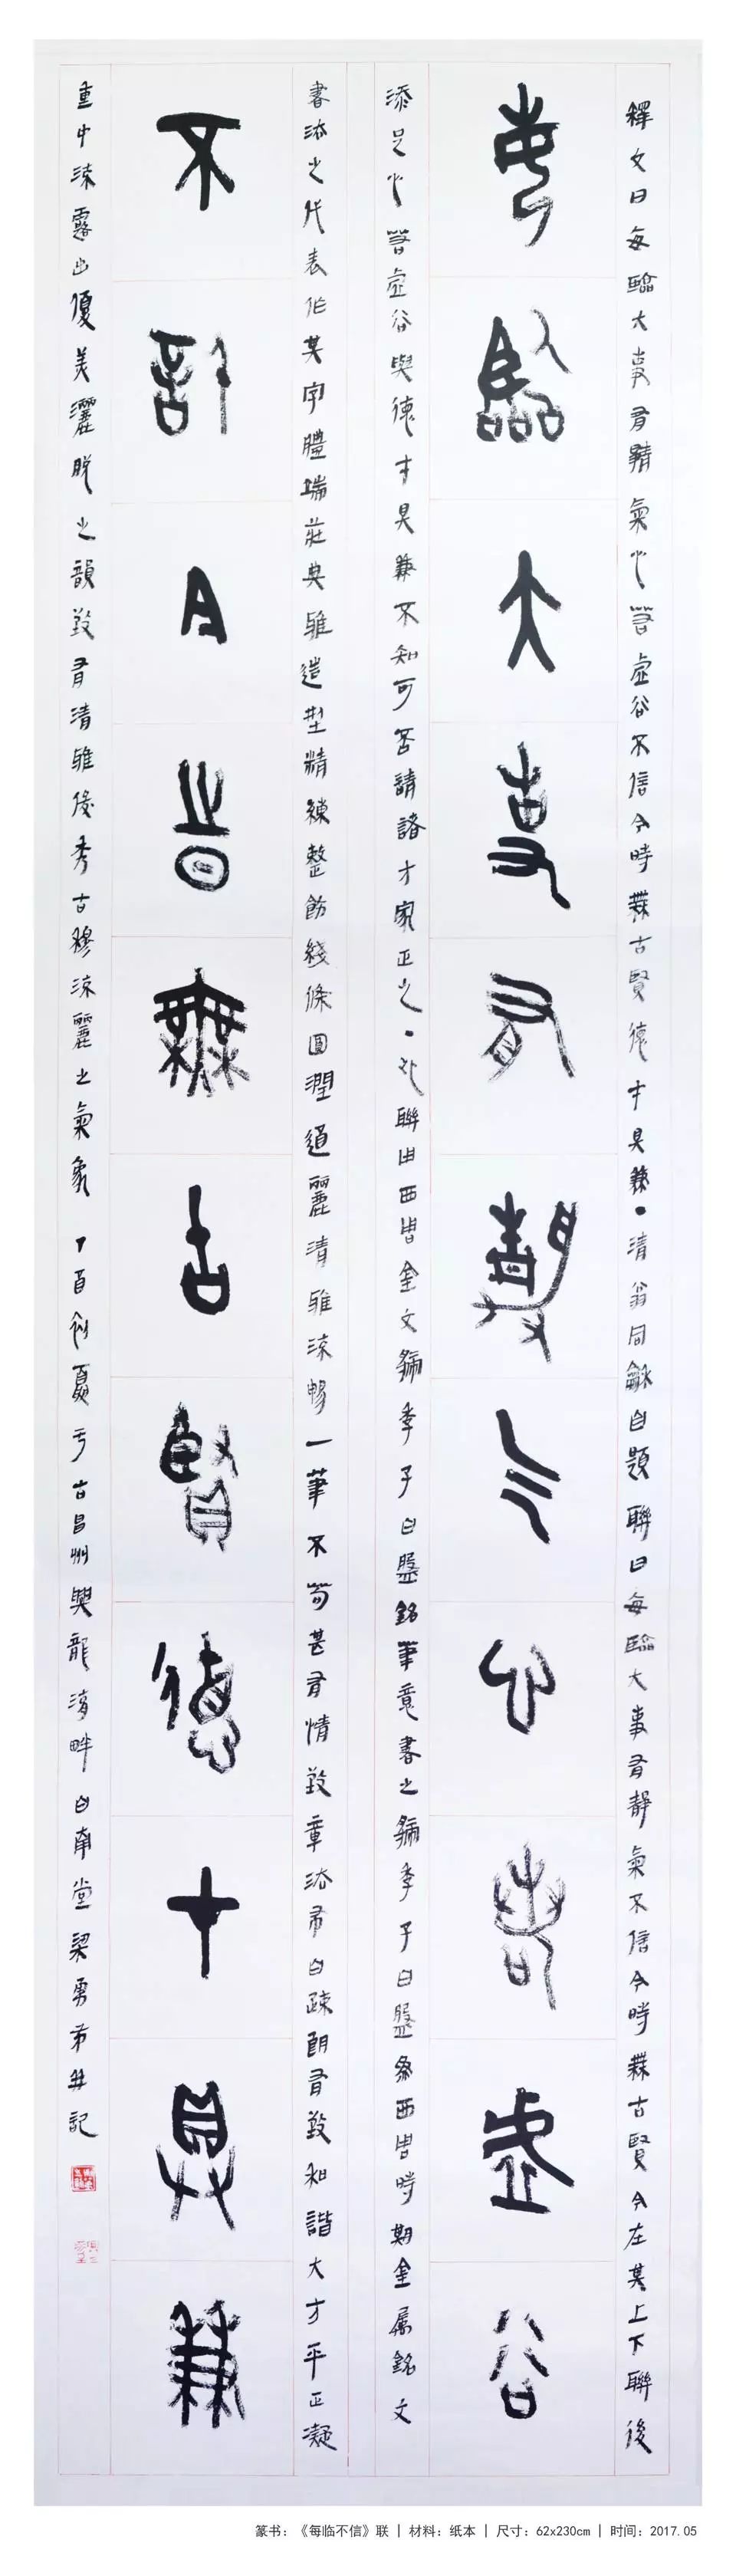 釋文曰每臨大事有靜氣心若虛谷不信今時無古賢德才具兼清翁同龢自題聯曰每臨大事有靜氣不信今時無古賢今在其上下聯後
每臨大事有靜气心若虛谷
添足心若虛谷與德才具兼不知可否請諸方家正之此聯由西周金文虢季子白盤銘筆意書之虢季子白盤為西周時期金屬銘文
書法之代表作其字體端莊典雅造型精練整飭綫條圓潤遒麗清雅流暢一筆不苟甚有情致章法布白疏朗有致和諧大方平正凝
不信今時無古賢德才具兼
重中流露出優美灑脫之韻致有清雅俊秀古穆流麗之氣象 丁酉初夏于古昌州興龍湖畔白南堂梁勇布并記
篆书：《每临不信》联 | 材料：纸本 | 尺寸：62x230cm | 时间：2017.05